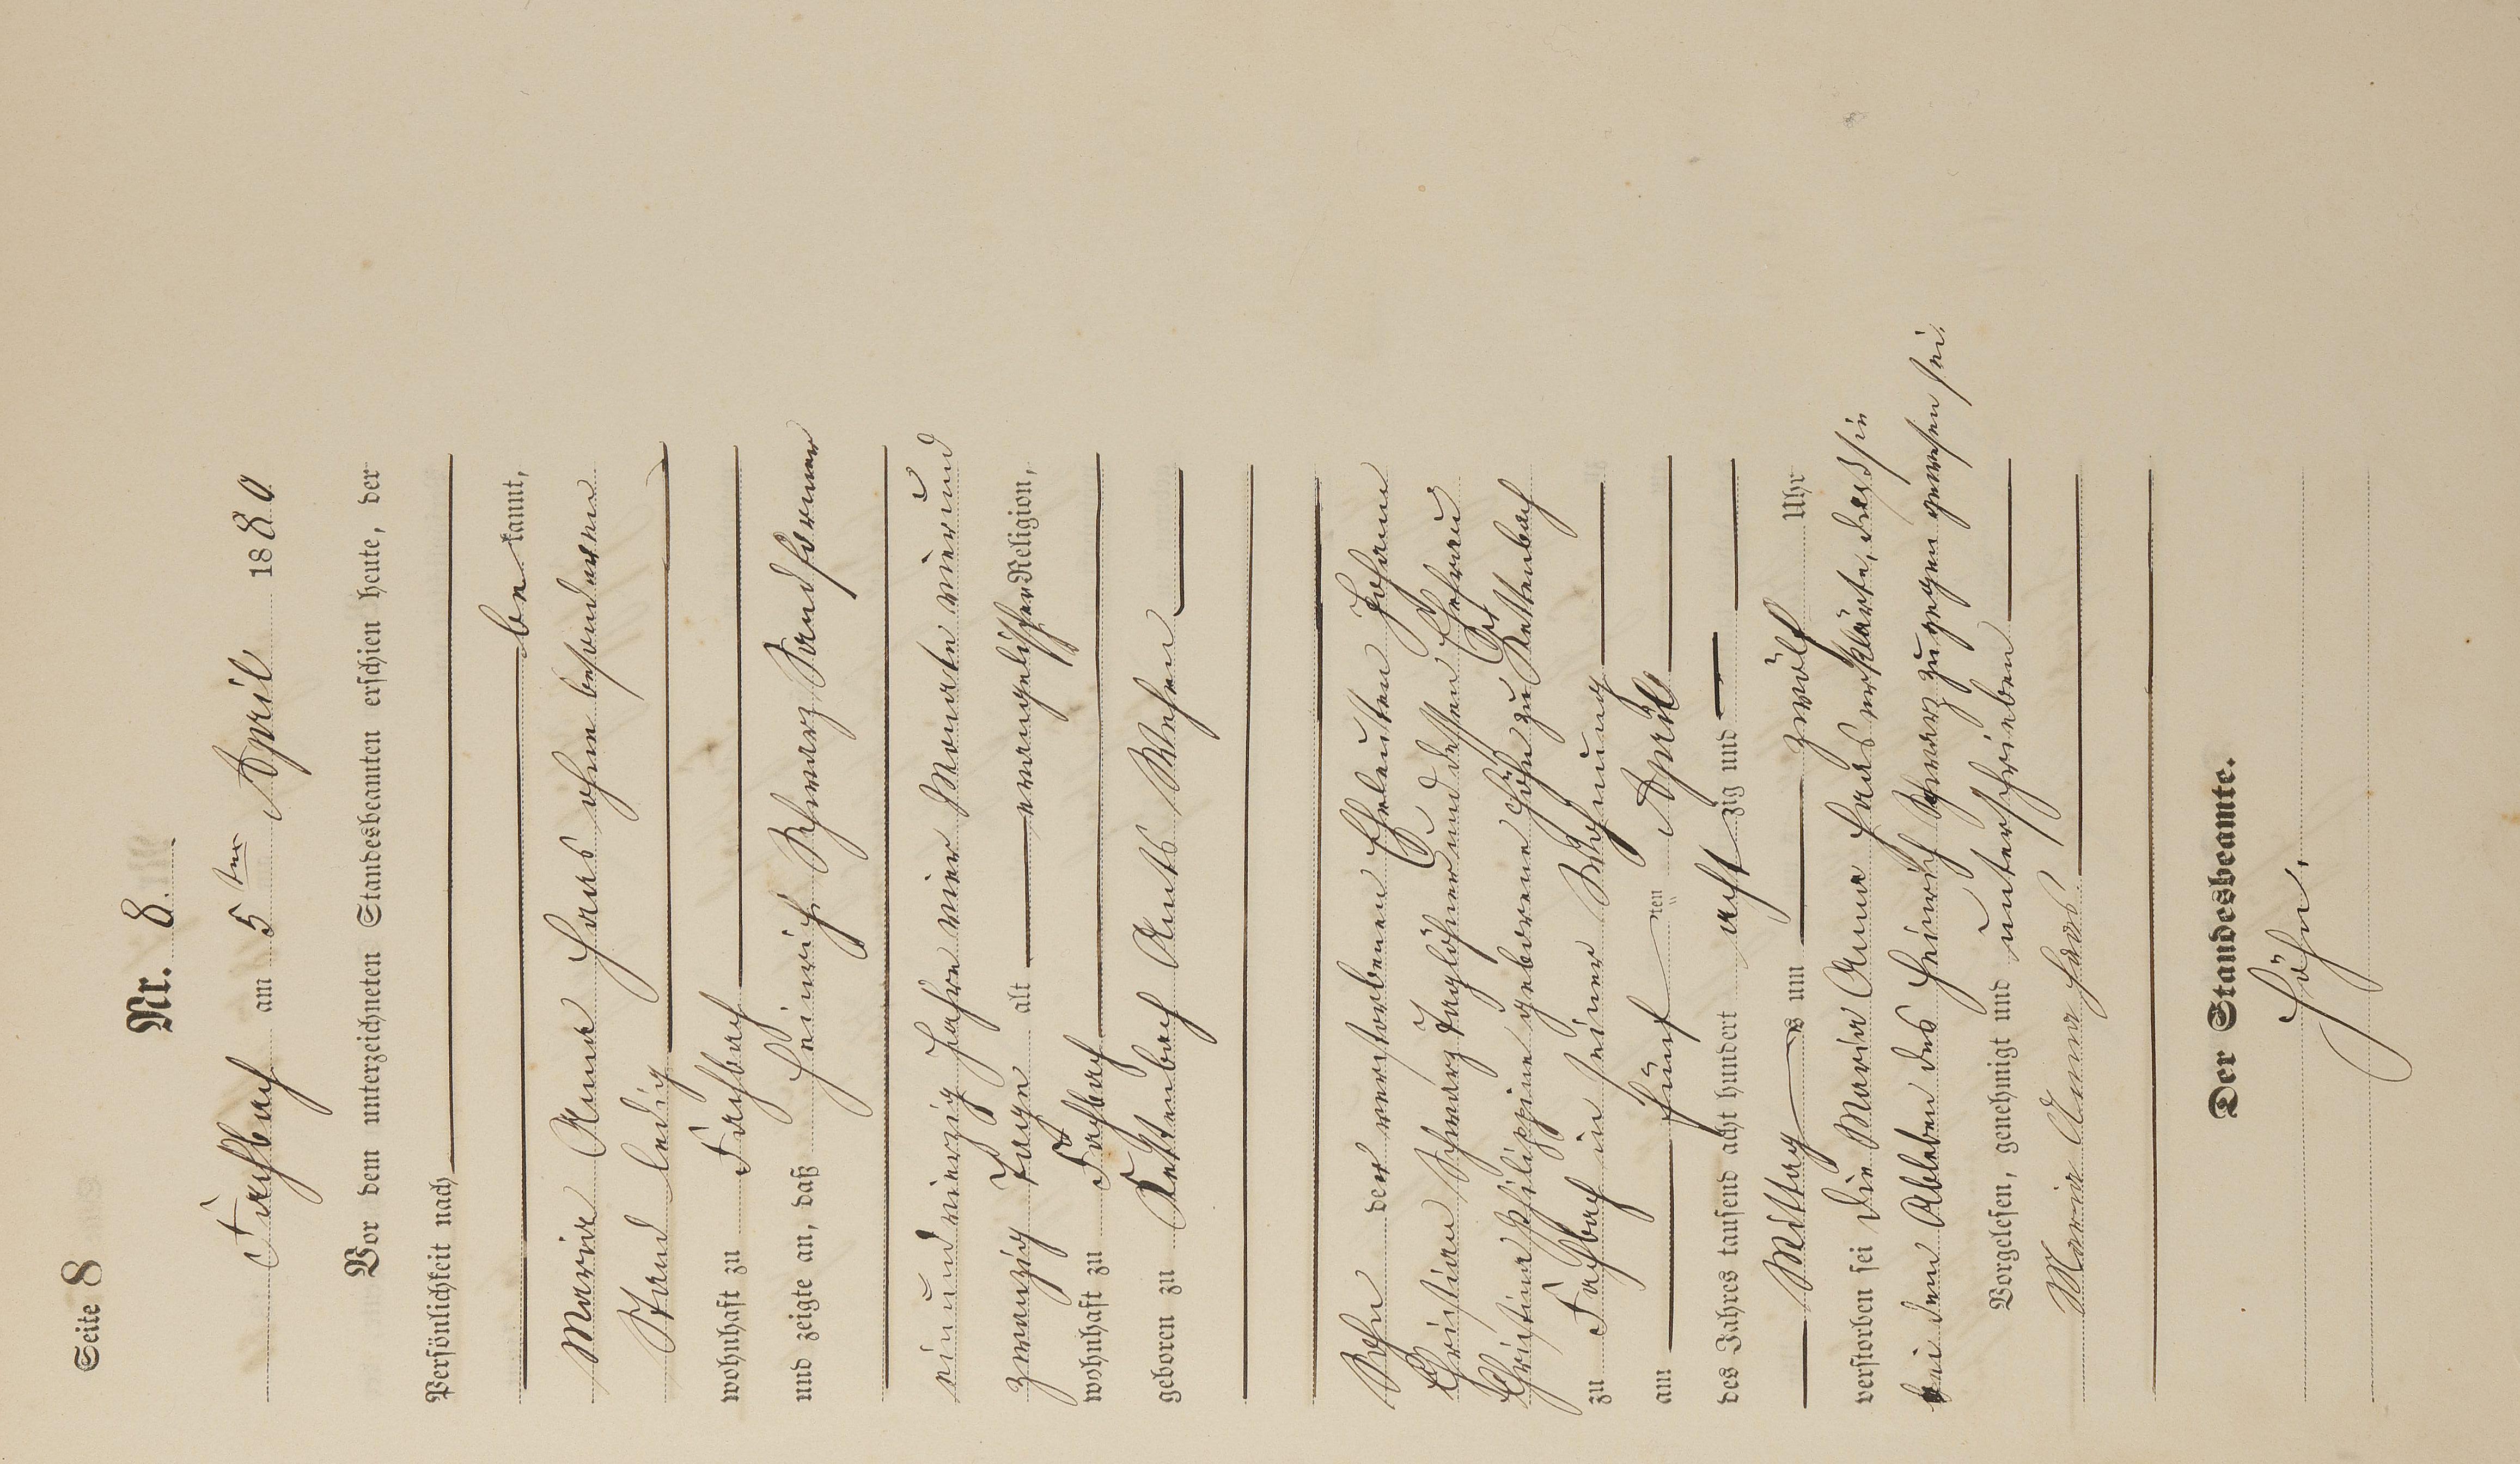 Seite 8
Nr. 8.
Fachbach am 5ten April 1880
Vor dem unterzeichneten Standesbeamten erschien heute, der
Persönlichkeit nach
be kannt,
Maria Anna Haas ohne besonderen
Stand ledig
wohnhaft zu Fachbach
und zeigte an, daß Heinrich Schwarz Sandformer
einundvierzig Jahre vier Monate vierund
zwanzig Tage alt evangelischer Religion,
wohnhaft zu Fachbach
geboren zu Kettenbach Amts Wehen
Sohn der verstorbenen Eheleuten Johann
Christian Schwarz Taglöhner und dessen Ehefrau
Christina Philippine geborene Höhn zu Kettenbach
zu Fachbach in seiner Wohnung
am fünf ten April
des Jahres tausend acht hundert acht zig und
Mittag s um zwölf Uhr
verstorben sei Die Maria Anna Haas erklärte, daß sie
bei dem Ableben des Heinrich Schwarz zugegen gewesen sei
Vorgelesen, genehmigt und unterschrieben
Maria Anna Haas
Der Standesbeamte.
Höhn.